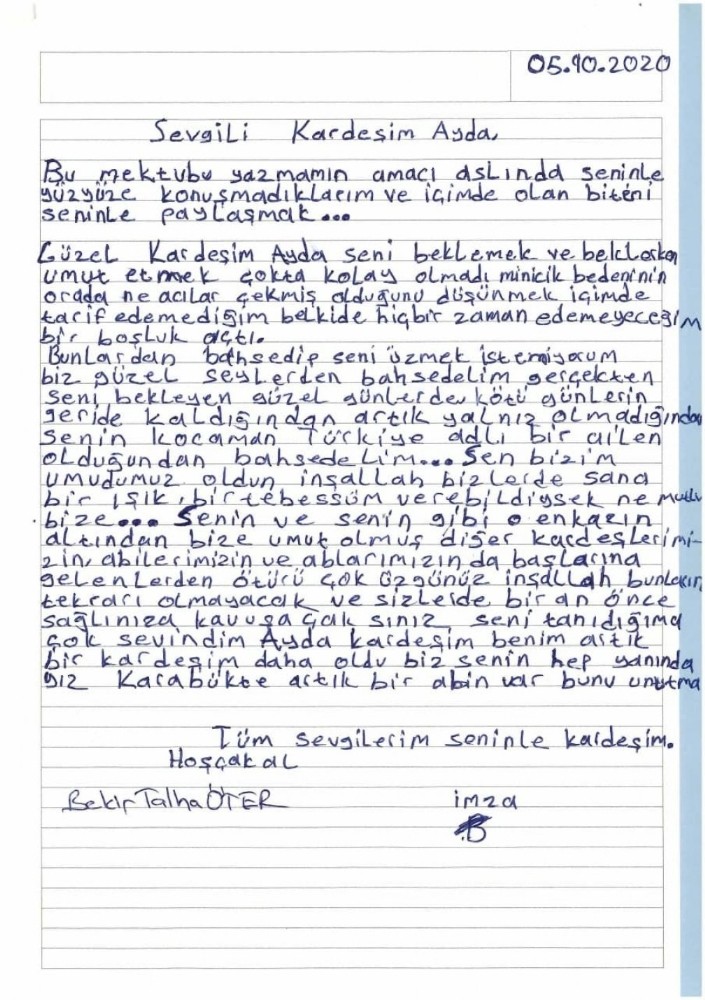 05.10.2020
Sevgili Kardeşim Ayda,
Bu mektubu yazmamın amacı aslında seninle
yüzyüze konuşmadıklarım ve içimde olan biteni
seninle paylaşmak...
Güzel Kardeşim Ayda seni beklemek ve beklerken
umut etmek çokta kolay olmadı minicik bedeninin
orada ne acılar çekmiş olduğunu düşünmek içimde
tarif edemediğim belkide hiçbir zaman edemeyeceğim
bir boşluk açtı.
Bunlardan bahsedip seni üzmek istemiyorum
biz güzel şeylerden bahsedelim gerçekten
seni bekleyen güzel günlerden kötü günlerin
geride kaldığından artık yalnız olmadığından
senin kocaman Türkiye adlı bir ailen
olduğundan bahsedelim... Sen bizim
umudumuz oldun inşallah bizlerde sana
bir ışık, bir tebessüm verebildiysek ne mutlu
bize... Senin ve senin gibi o enkazın
altından bize umut olmuş diğer kardeşlerimi-
zin, abilerimizin ve ablarımızın da başlarına
gelenlerden ötürü çok üzgünüz inşallah bunların
tekrarı olmayacak ve sizlerde bir an önce
sağlınıza kavuşacak sınız seni tanıdığıma
çok sevindim Ayda kardeşim benim artık
bir kardeşim daha oldu biz senin hep yanında
yız Karabükte artık bir abin var bunu unutma
Tüm sevgilerim seninle kardeşim.
Hoşçakal
Bekir Talha ÖTER imza
B